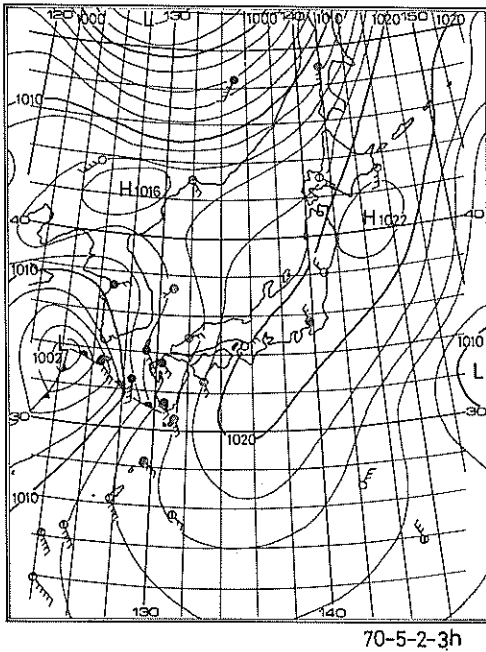 120 1000 L 130 1000 140 1010 1020 150 1020
1010
H 1016
H 1022
40
40
1010
1010
1002
L
30
30
1020
1010
130
140
70-5-2-3h